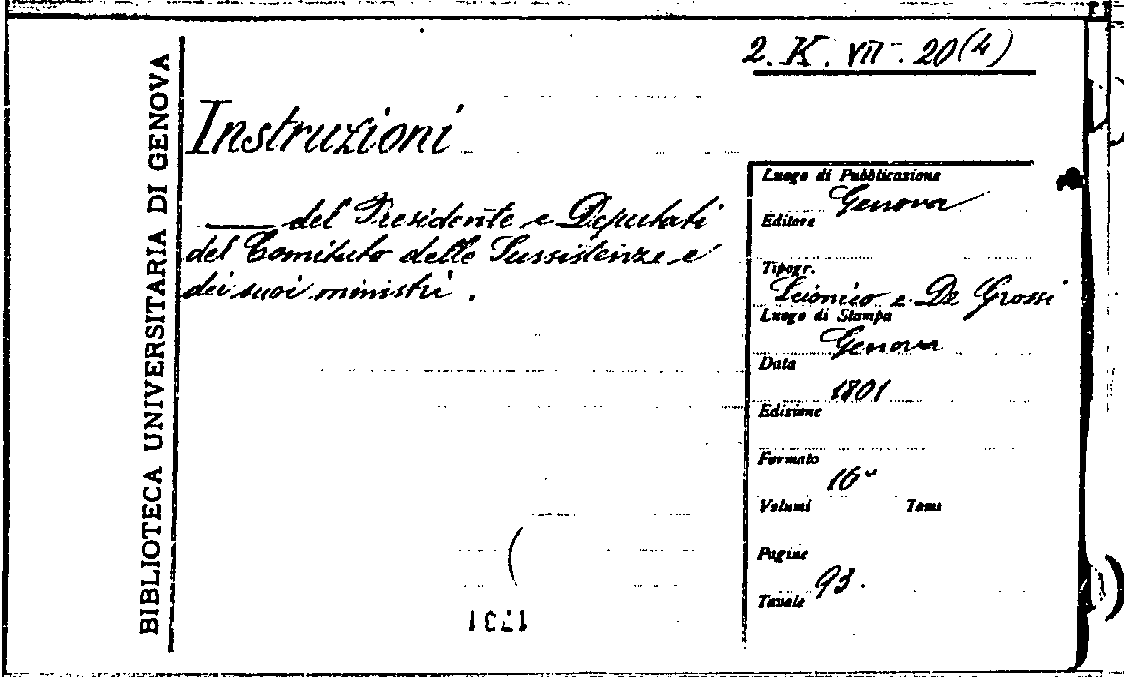 2. K. VII. 20(4)
BIBLIOTECA UNIVERSITARIA DI GENOVA
Instruzioni
del Presidente e Deputati
del Comitato delle Sussistenze e
dei suoi ministri.
Luogo di Pubblicazione
Genova
Editore
Tipogr.
Scionico e De Grossi
Luogo di Stampa
Genova
Data
1801
Edizione
Formato
16°
Volumi Tomi
Pagine
93.
Tavole